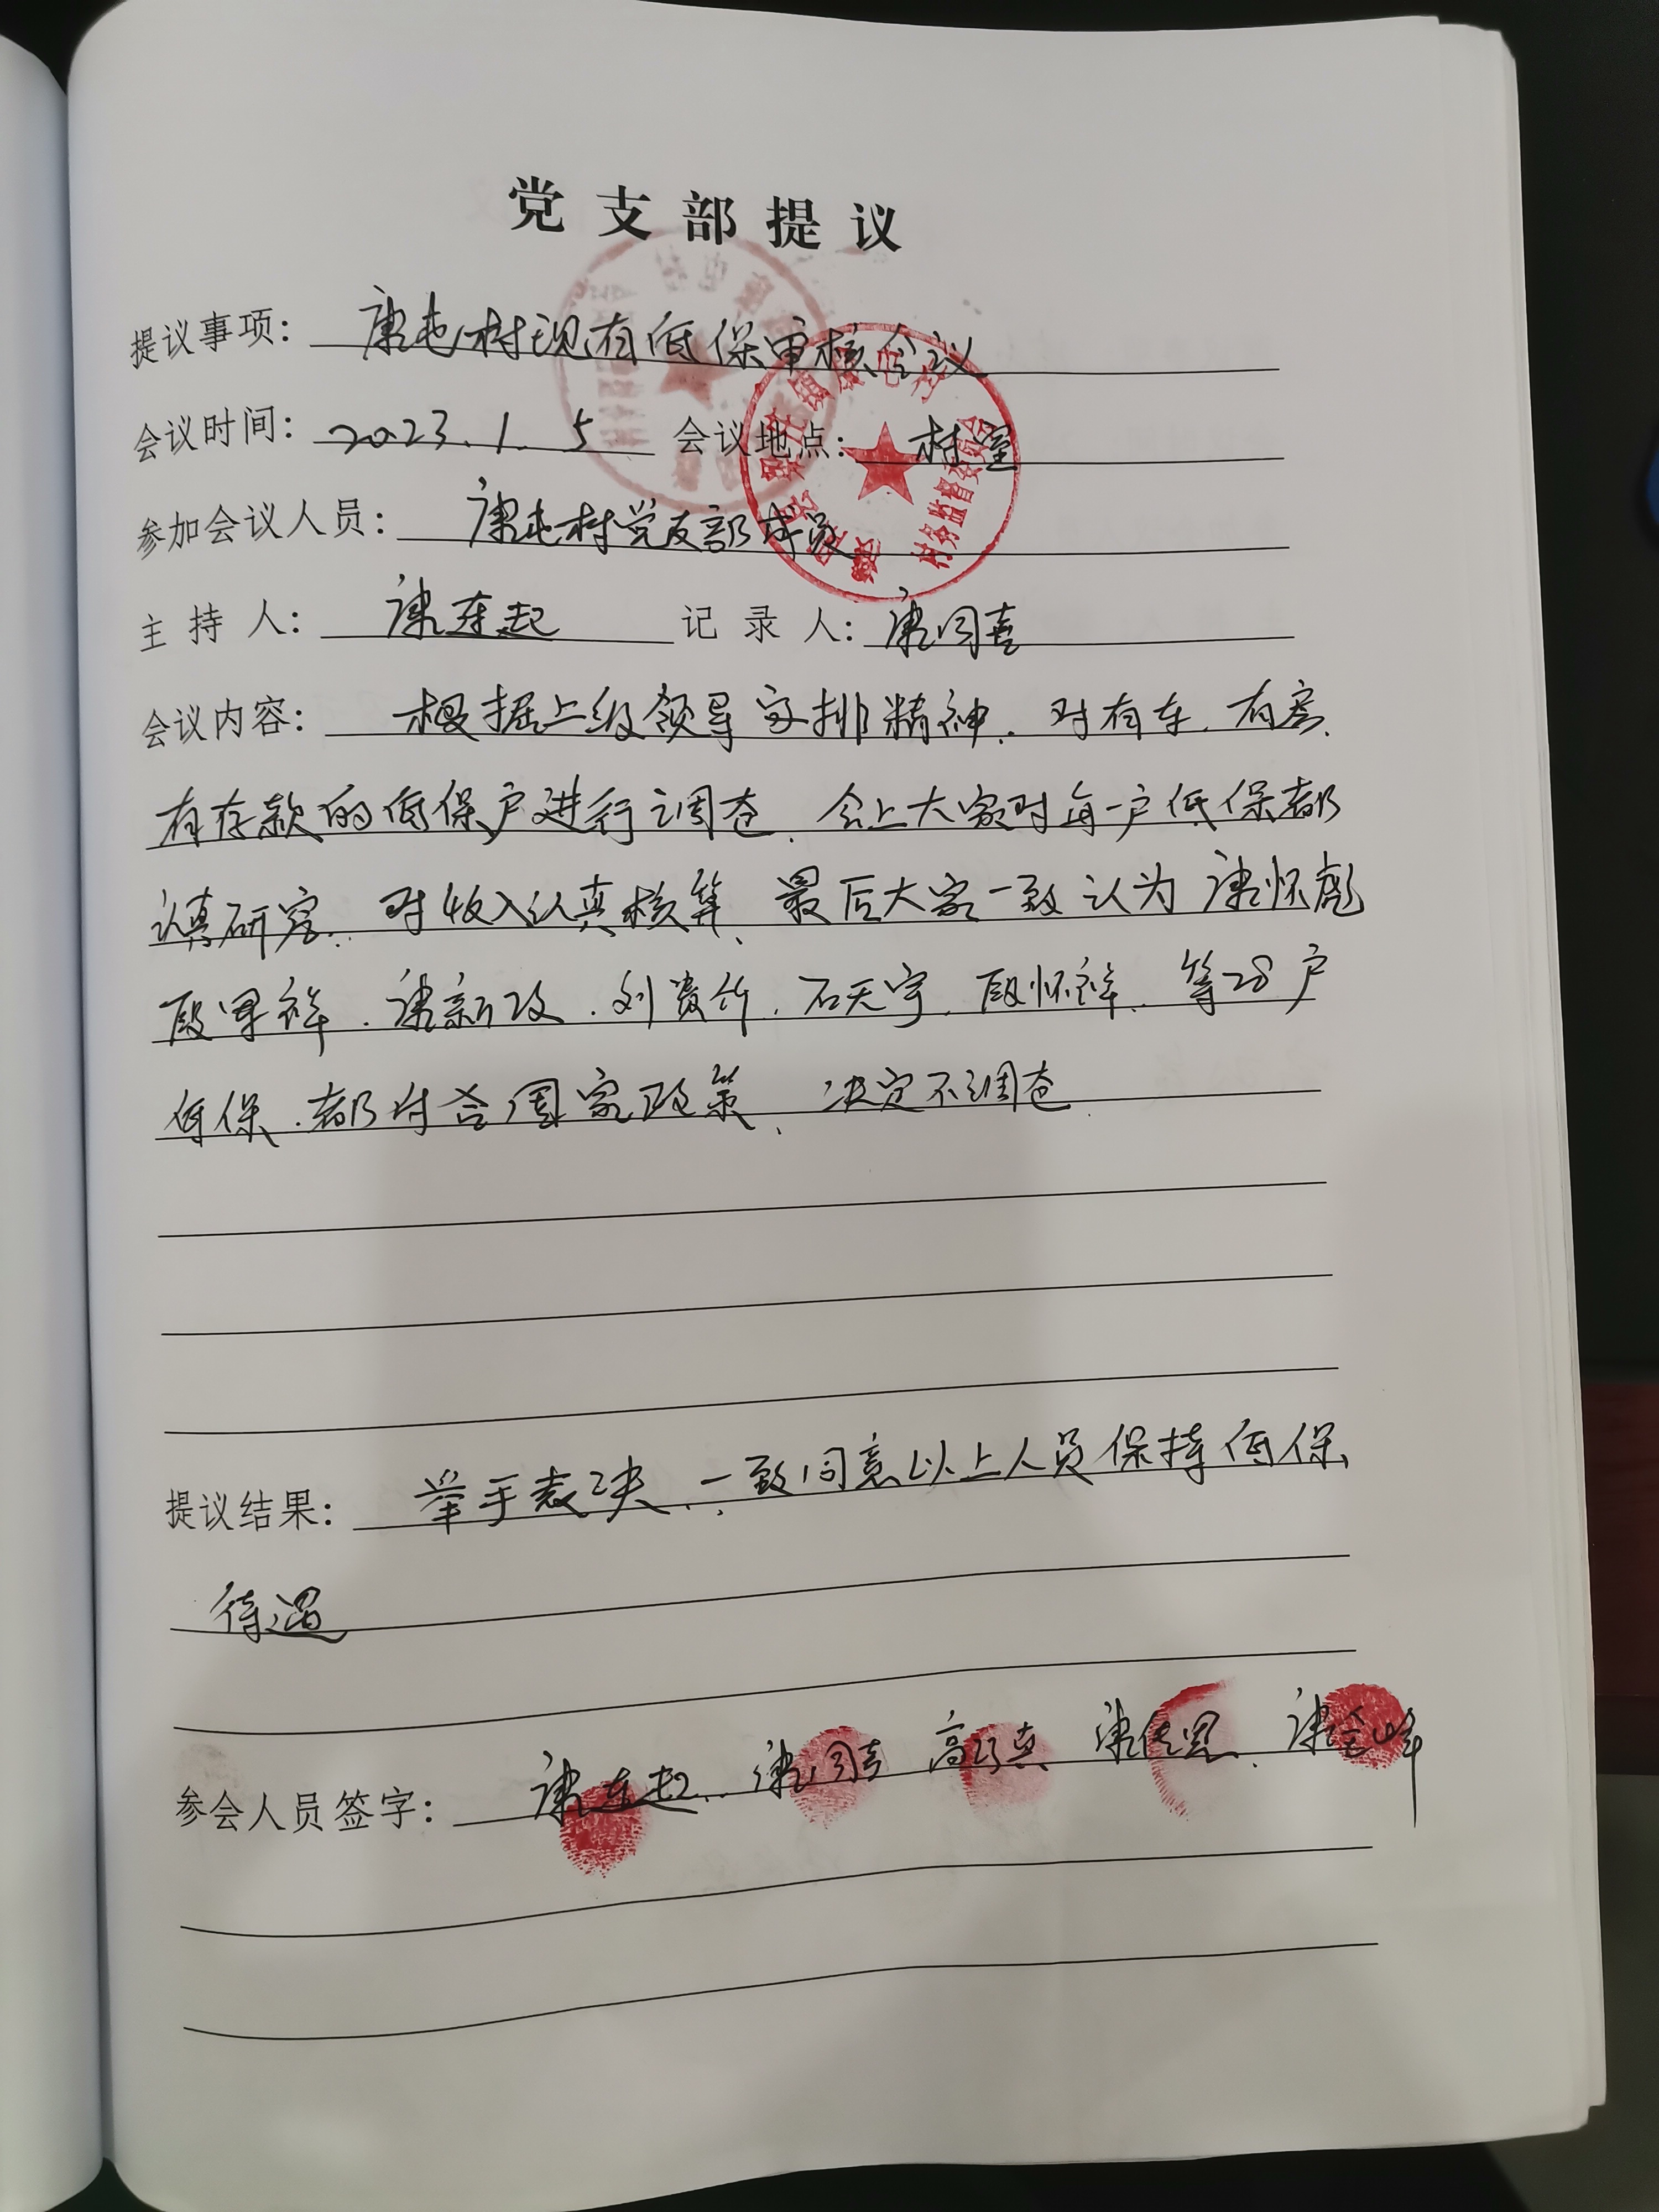 党支部提议
提议事项: 康屯村现有低保审核会议
会议时间: 2023.1.5 会议地点: 村室
参加会议人员: 康屯村党支部成员
主持人: 康东起 记录人: 康同喜
会议内容: 根据上级领导安排精神.对有车.有房.
有存款的低保户进行调查.会上大家对每一户低保都
认真研究.对收入认真核算.最后大家一致认为康怀彪
段果祥.康新改.刘贵竹.石天宇.段怀祥.等28户
低保.都付合国家政策.决定不调查
提议结果: 举手表决.一致同意以上人员保持低保
待遇
参会人员签字: 康东起 康同喜 高巧真 康传恩 康金峰
村务监督委员会